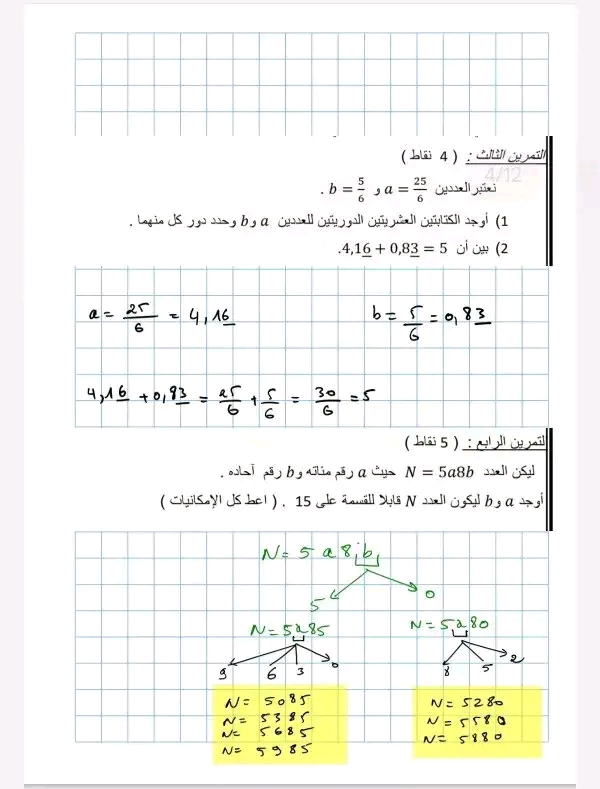 التمرين الثالث : ( 4 نقاط )
4/12
نعتبر العددين a = 25/6 و b = 5/6 .
1) أوجد الكتابتين العشريتين الدوريتين للعددين a و b وحدد دور كل منهما .
2) بين أن 4,1<u>6</u> + 0,8<u>3</u> = 5.
a = 25/6 = 4,1<u>6</u> b = 5/6 = 0,8<u>3</u>
4,1<u>6</u> + 0,8<u>3</u> = 25/6 + 5/6 = 30/6 = 5
التمرين الرابع : ( 5 نقاط )
ليكن العدد N = 5a8b حيث a رقم مئاته و b رقم آحاده .
أوجد a و b ليكون العدد N قابلا للقسمة على 15 . ( اعط كل الإمكانيات )
N = 5 a 8 b
5 0
N = 5a85 N = 5a80
9 6 3 0 8 5 2
N = 5085 N = 5280
N = 5385 N = 5580
N = 5685 N = 5880
N = 5985